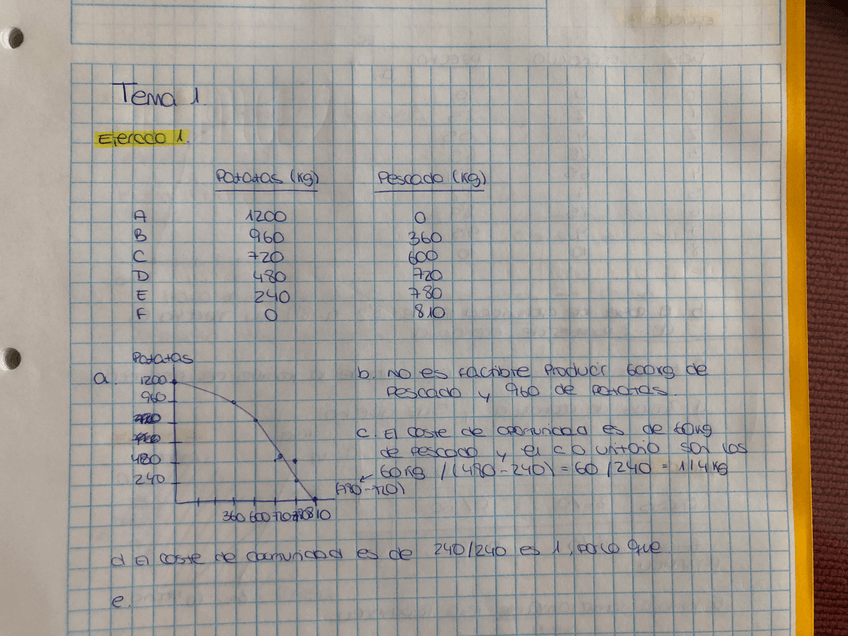 Tema 1
Ejercicio 1.
Patatas (kg) Pescado (kg)
A 1200 0
B 960 360
C 720 600
D 480 720
E 240 780
F 0 810
Patatas
a. 1200
960
480
240
360 600 720 780 810
b. No es factible producir 600kg de
pescado y 960 de patatas.
c. El coste de oportunidad es de 60kg
de pescado y el c.o unitario son los
60kg / (480-240) = 60/240 = 1/4 kg
(780-720)
d El coste de oportunidad es de 240/240 es 1, ya que
e.